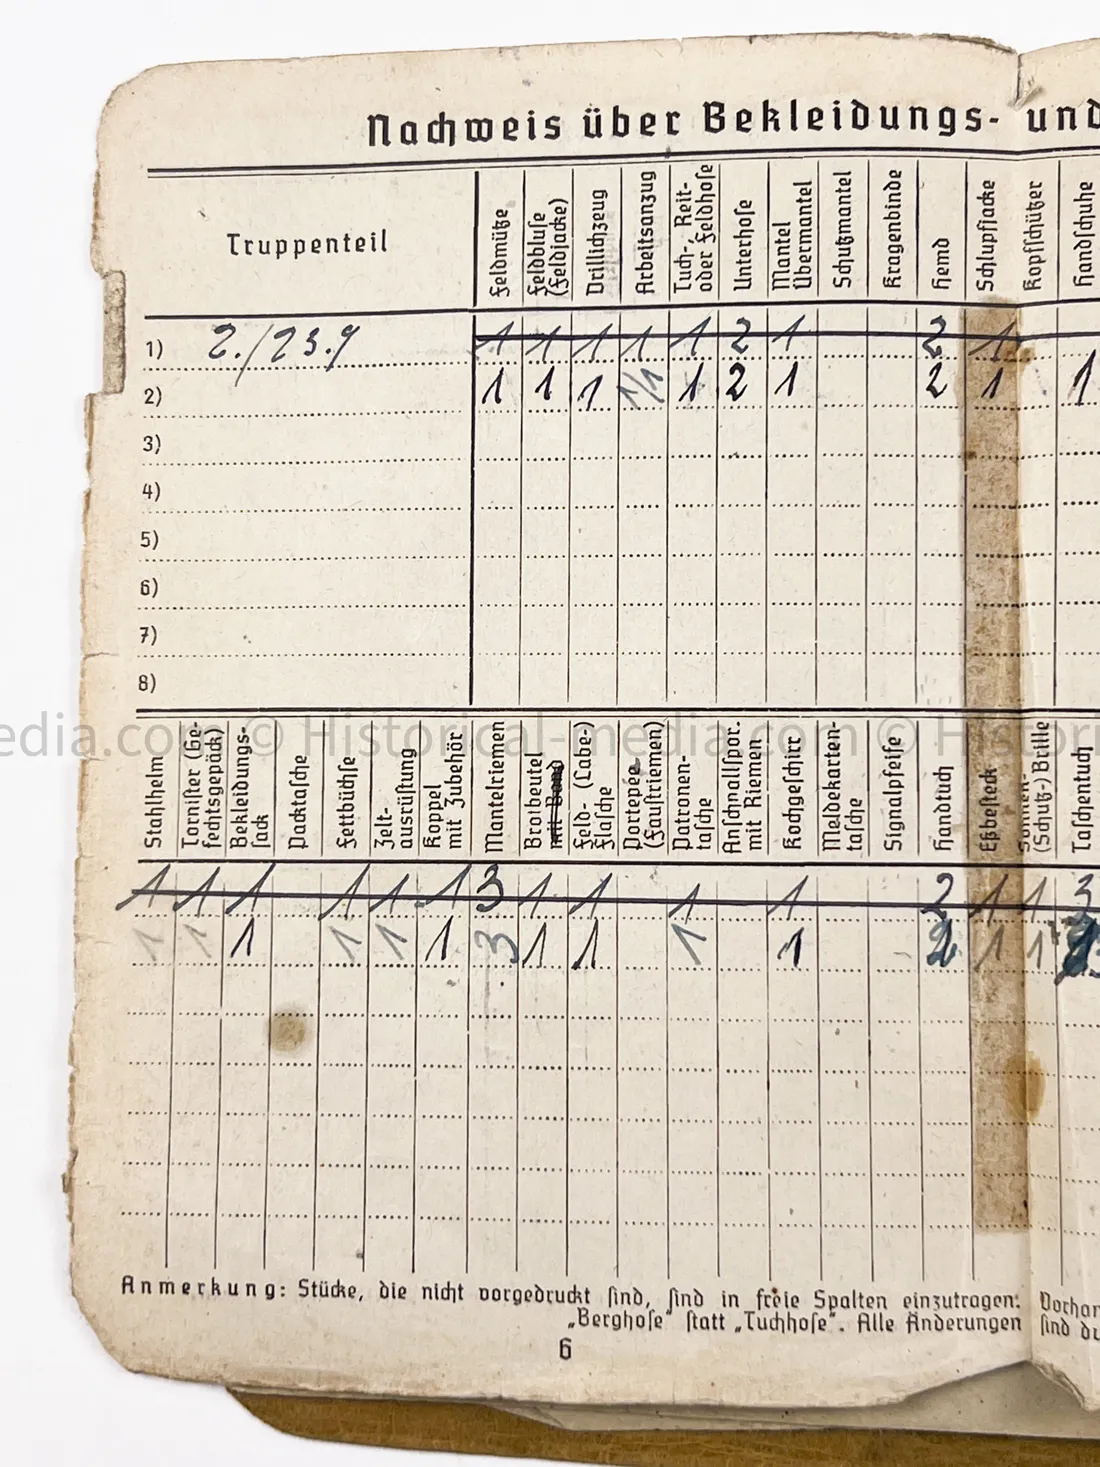 Nachweis über Bekleidungs- und
Truppenteil
Feldmütze
Feldbluse
(Feldjacke)
Drillichzeug
Arbeitsanzug
Tuch-, Reit-
oder Feldhose
Unterhose
Mantel
Übermantel
Schutzmantel
Kragenbinde
Hemd
Schlupfjacke
Kopfschützer
Handschuhe
1) 2./23.9 1 1 1 1 1 2 1 2 1
2) 1 1 1 1/1 1 2 1 2 1 1
3)
4)
5)
6)
7)
8)
edia.com © Historical-media.com © Histori
Stahlhelm
Tornister (Ge-
fechtsgepäck)
Bekleidungs-
sack
Packtasche
Fettbüchse
Zelt-
ausrüstung
Koppel
mit Zubehör
Mantelriemen
Brotbeutel
mit Band
Feld- (Labe-)
flasche
Portepée
(Faustriemen)
Patronen-
tasche
Anschnallspor.
mit Riemen
Kochgeschirr
Meldekarten-
tasche
Signalpfeife
Handtuch
Eßbesteck
Sonnen-
(Schutz-) Brille
Taschentuch
1 1 1 1 1 1 3 1 1 1 1 2 1 1 3
1 1 1 1 1 1 3 1 1 1 1 2 1 1
Anmerkung: Stücke, die nicht vorgedruckt sind, sind in freie Spalten einzutragen. Vorhan
„Berghose“ statt „Tuchhose“. Alle Änderungen sind du
6